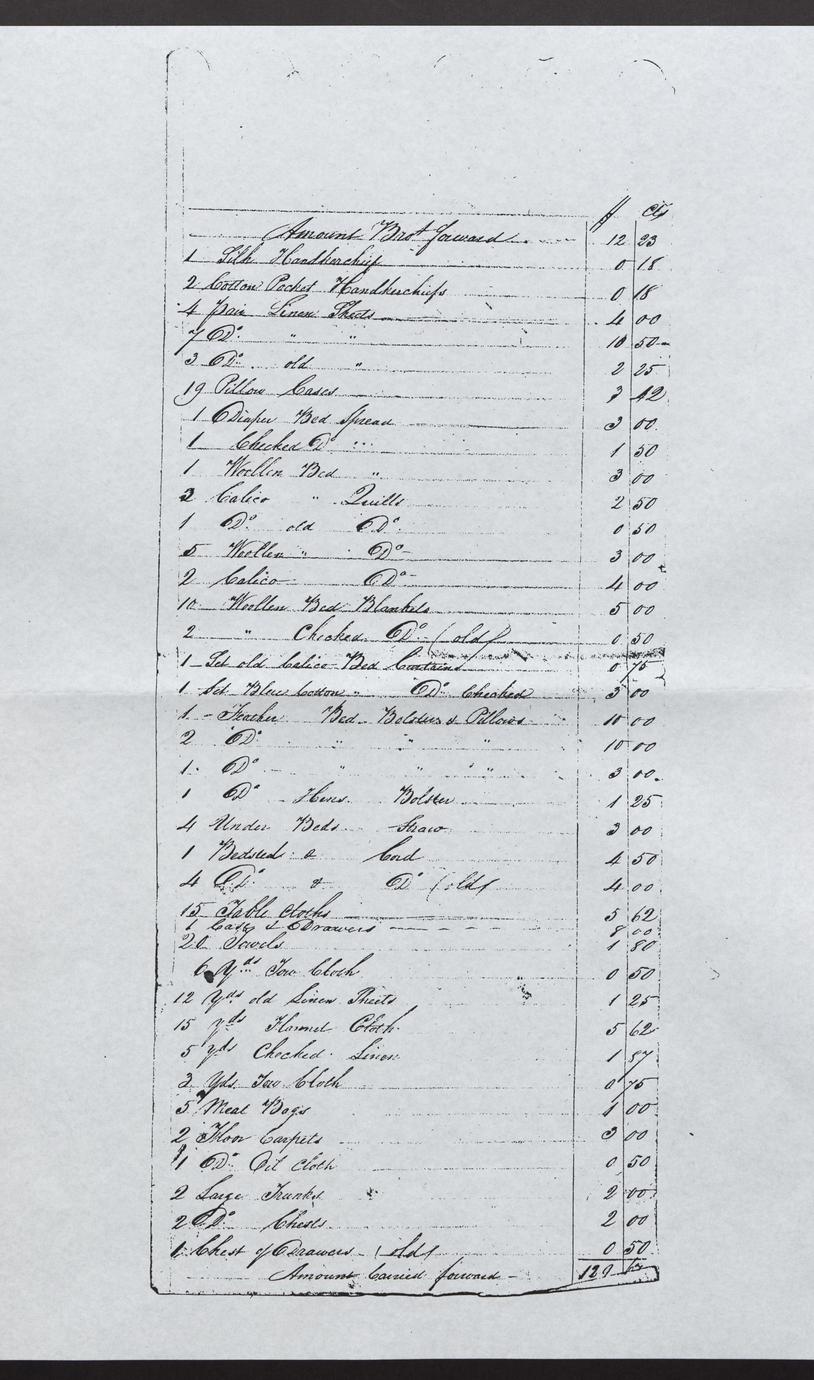 $ Cts
Amount Brot forward 12 23
1 Silk Handkerchief 0 18
2 Cotton Pocket Handkerchiefs 0 18
4 pair Linen Sheets 4 00
7 Do " " 10 50
3 Do old " 2 25
19 Pillow Cases 3 42
1 Diaper Bed Spread 3 00
1 Checked Do " 1 50
1 Woollen Bed " 3 00
3 Calico " Quilts 2 50
1 Do old Do 0 50
5 Woollen " Do 3 00
2 Calico Do 4 00
10 Woollen Bed Blankets 5 00
2 " Checked Do (old) 0 50
1 Set old Calico Bed Curtains 0 75
1 Set Blue Cotton " Do Checked 3 00
1 Feather Bed Bolsters & Pillows 10 00
2 Do " " " 10 00
1 Do " " " " 3 00
1 Do Bolster 1 25
4 Under Beds Straw 3 00
1 Bedsted & Cord 4 50
4 Do & Do (old) 4 00
15 Table Cloths 5 62
1 Case & Drawers 8 00
20 Towels 1 80
6 Yds Tow Cloth 0 50
12 Yds old Linen Sheets 1 25
15 yds Flannel Cloth 5 62
5 yds Checked Linen 1 87
3 Yds Tow Cloth 0 75
5 Meal Bags 1 00
2 Floor Carpets 3 00
1 Do Oil Cloth 0 50
2 Large Trunks 2 00
2 Do Chests 2 00
1 Chest of Drawers (old) 0 50
Amount Carried forward 129